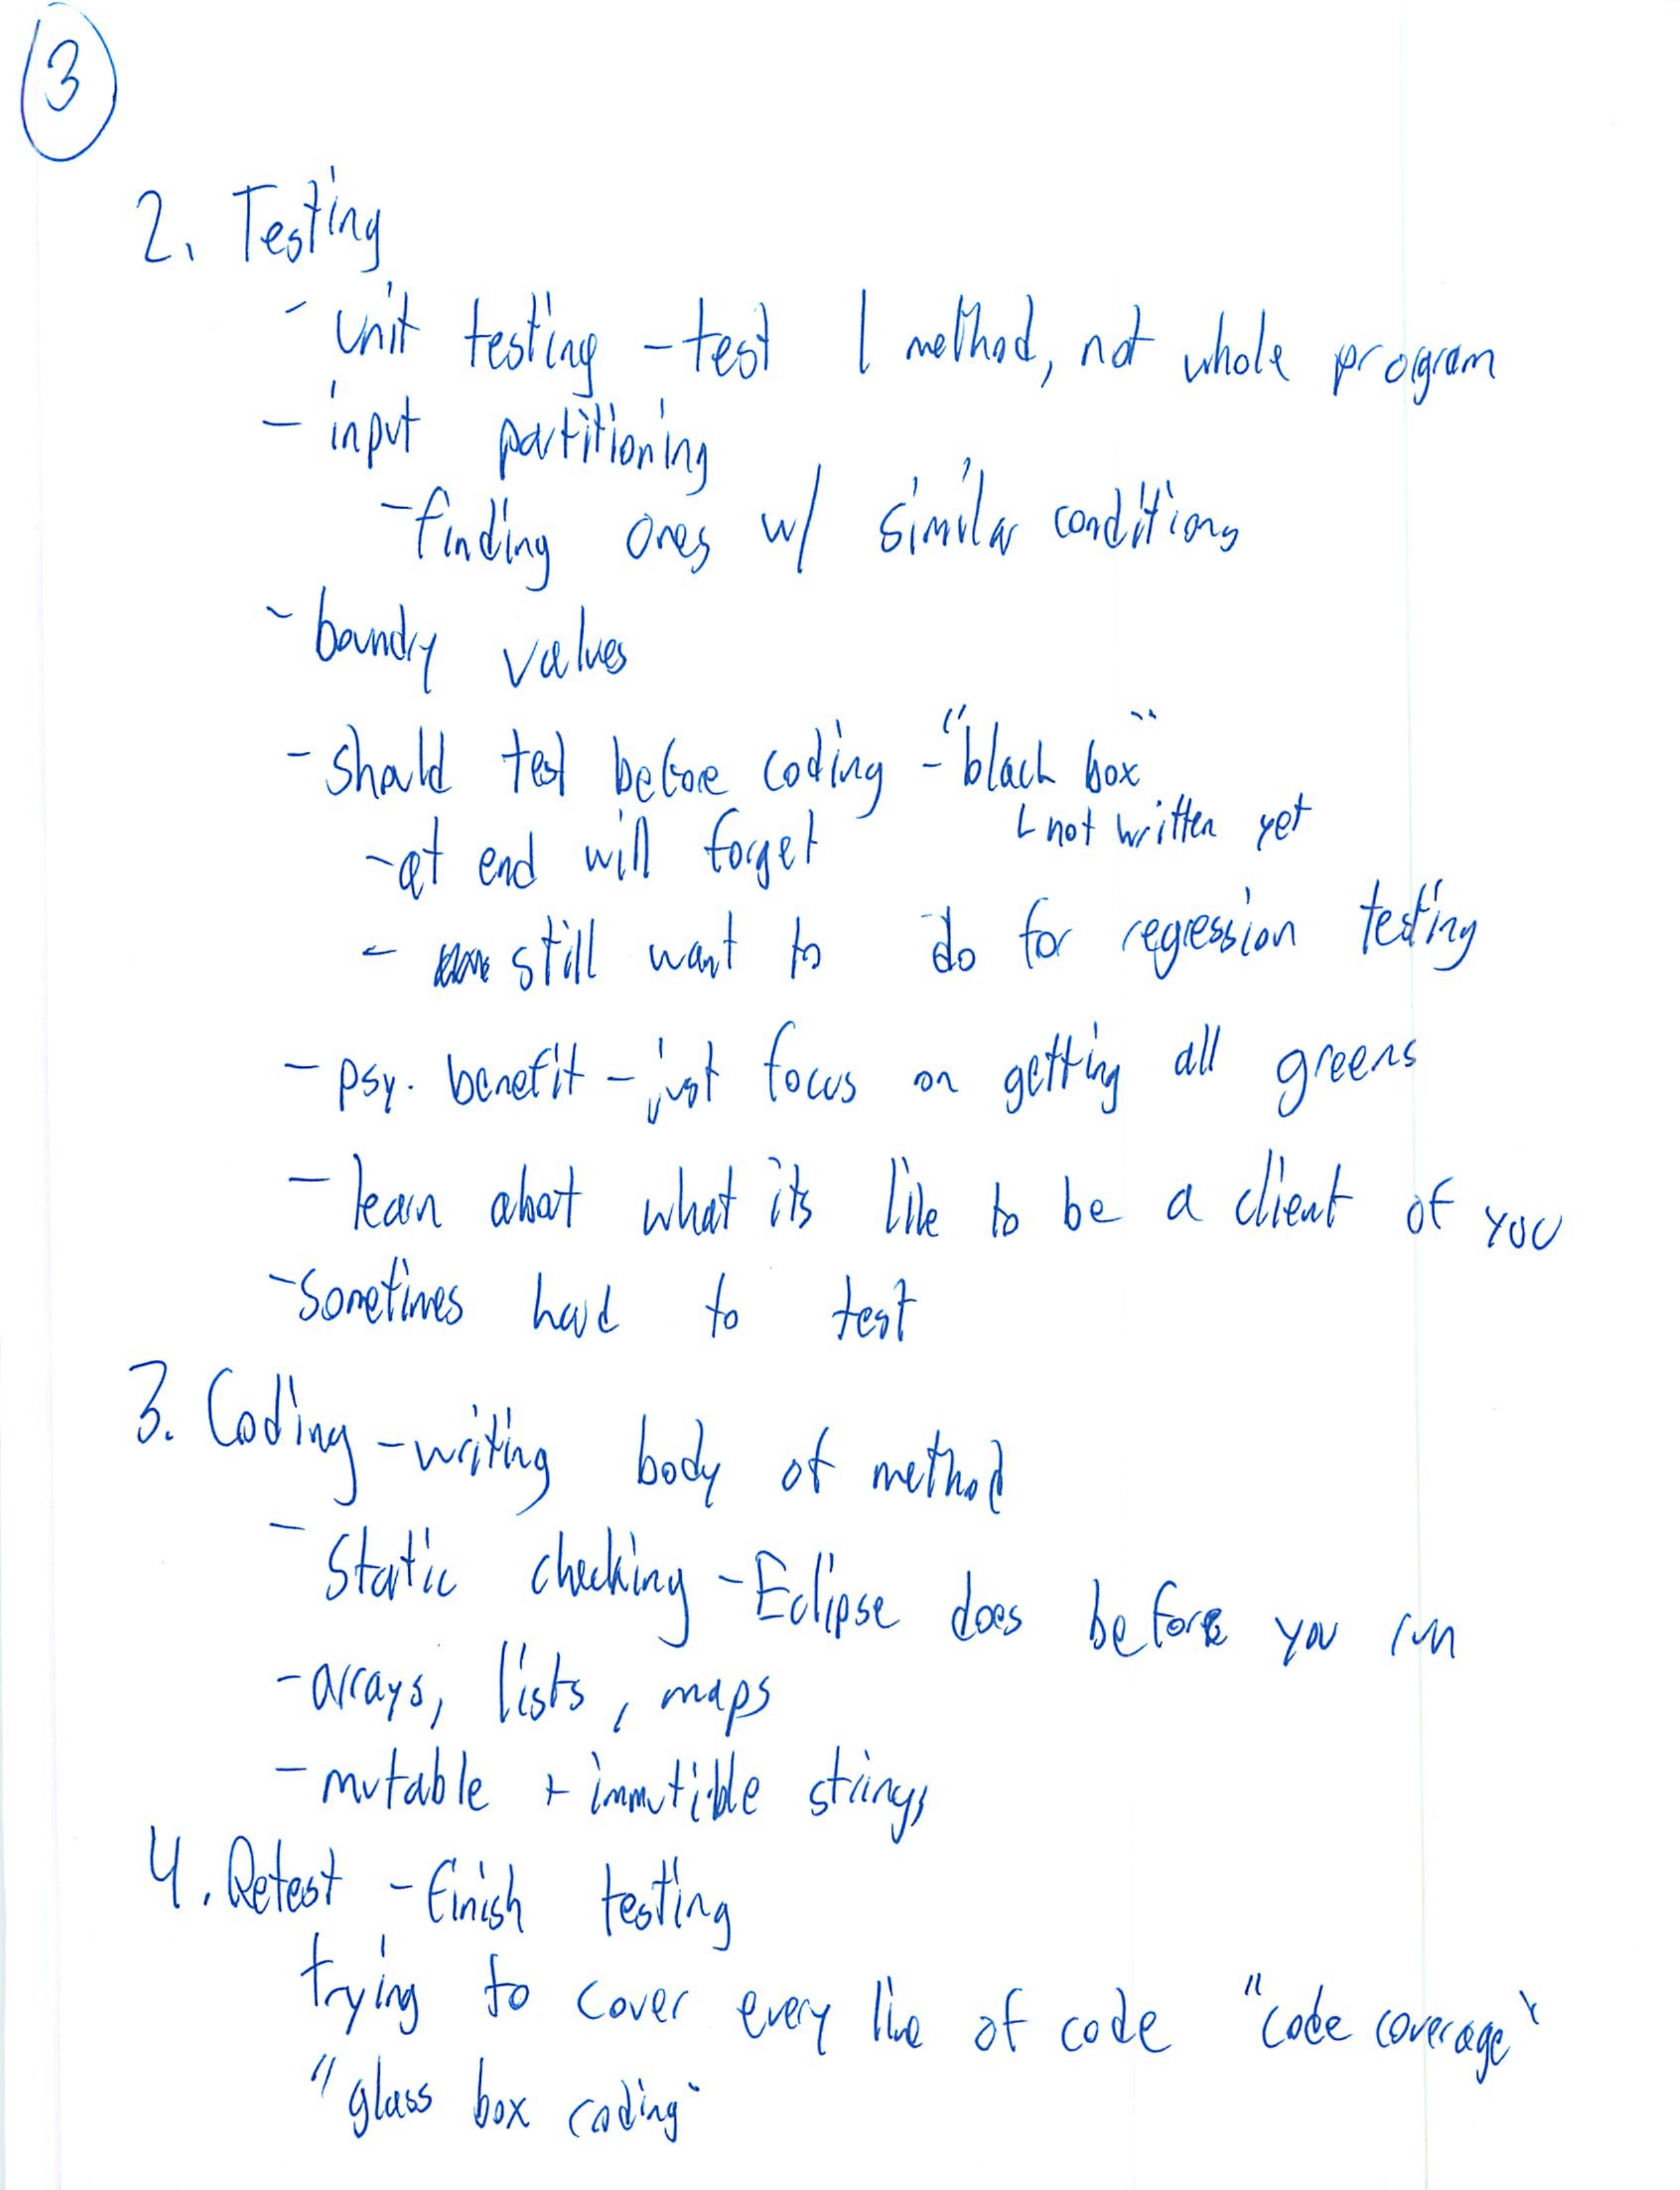 3
2. Testing
- unit testing - test 1 method, not whole program
- input partitioning
- finding ones w/ similar conditions
- boundry values
- should test before coding - "black box"
not written yet
- at end will forget
- still want to do for regression testing
- psy. benefit - just focus on getting all greens
- learn about what its like to be a client of you
- Sometimes hard to test
3. Coding - writing body of method
- Static checking - Eclipse does before you run
- arrays, lists, maps
- mutable + immutible strings
4. Retest - finish testing
trying to cover every line of code "code coverage"
"glass box coding"